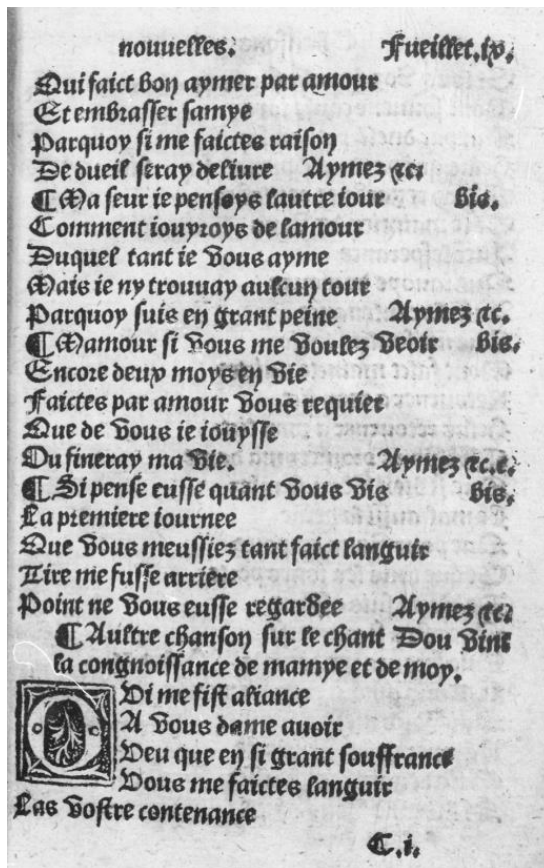 nouuelles. Fueillet.ix.
Qui faict bon aymer par amour
Et embrasser samye
Parquoy si me faictes raison
De dueil seray deliure Aymez &c.
¶ Ma seur ie pensoys lautre iour bis.
Comment iouyroys de lamour
Duquel tant ie vous ayme
Mais ie ny trouuay aulcun tour
Parquoy suis en grant peine Aymez &c.
¶ Mamour si vous me voulez veoir bis.
Encore deux moys en vie
Faictes par amour vous requier
Que de vous ie iouysse
Ou fineray ma vie. Aymez &c.
¶ Si pense eusse quant vous vis bis.
La premiere iournee
Que vous meussiez tant faict languir
Tire me fusse arriere
Point ne vous eusse regardee Aymez &c.
¶ Aultre chanson sur le chant Dou vint
la congnoissance de mamye et de moy.
QVi me fist aliance
A vous dame auoir
Veu que en si grant souffrance
Vous me faictes languir
Las vostre contenance
C.i.